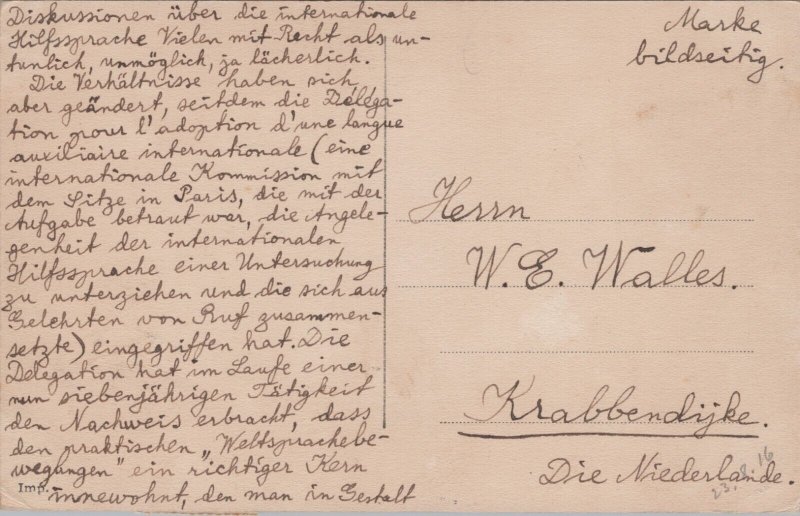 Diskussionen über die internationale
Hilfssprache Vielen mit Recht als un-
tunlich, unmöglich, ja lächerlich.
Die Verhältnisse haben sich
aber geändert, seitdem die Déléga-
tion pour l'adoption d'une langue
auxiliaire internationale (eine
internationale Kommission mit
dem Sitze in Paris, die mit der
Aufgabe betraut war, die Angele-
genheit der internationalen
Hilfssprache einer Untersuchung
zu unterziehen und die sich aus
Gelehrten von Ruf zusammen-
setzte) eingegriffen hat. Die
Delegation hat im Laufe einer
nun siebenjährigen Tätigkeit
den Nachweis erbracht, dass
den praktischen „Weltsprachebe-
wegungen" ein richtiger Kern
innewohnt, den man in Gestalt
Imp.
Marke
bildseitig.
Herrn
W. E. Walles.
Krabbendijke.
Die Niederlande.